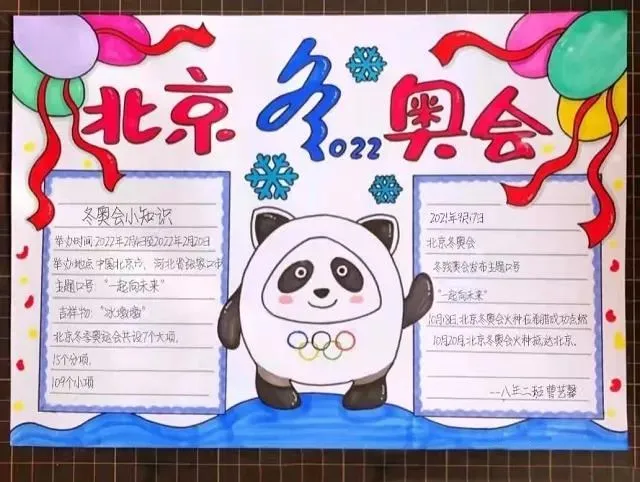 北京冬奥会
2022
冬奥会小知识
举办时间 2022年2月4日至2022年2月20日
举办地点 中国北京市、河北省张家口市
主题口号 "一起向未来"
吉祥物 "冰墩墩"
北京冬季奥运会共设7个大项,
15个分项,
109个小项
2021年9月17日
北京冬奥会
冬残奥会发布主题口号
"一起向未来"
10月18日,北京冬奥会火种在希腊成功点燃
10月20日,北京冬奥会火种抵达北京.
——八年二班 曾艺馨